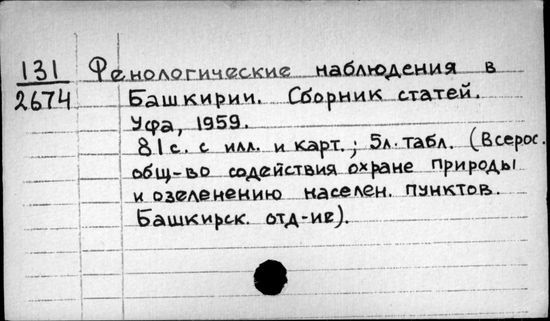 131 Фенологические наблюдения в
2674 Башкирии. Сборник статей.
Уфа, 1959.
81с. с илл. и карт.; 5л. табл. (Всерос.
общ-во содействия охране природы
и озеленению населен. пунктов.
Башкирск. отд-ие).